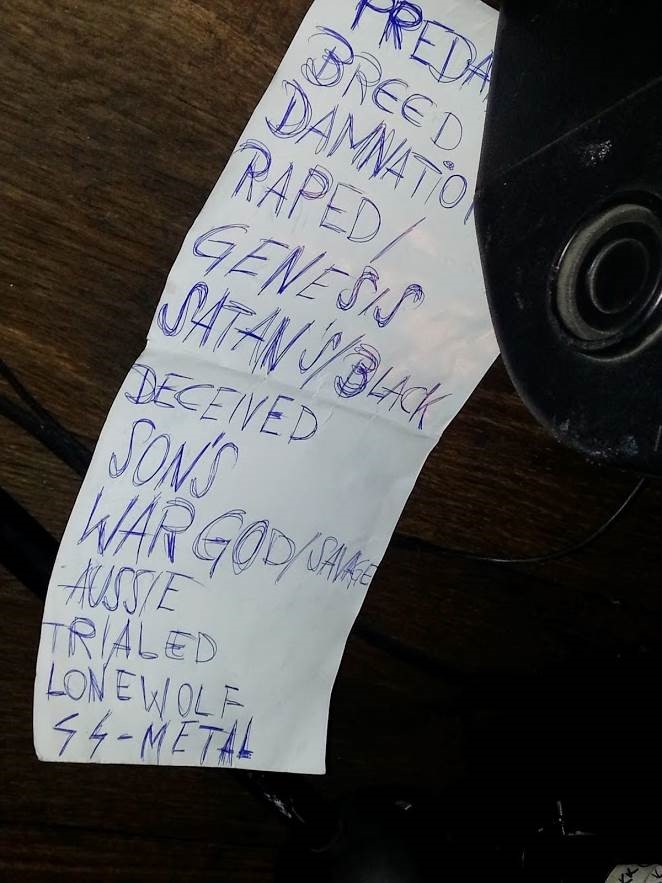 PREDA
BREED
DAMNATIO
RAPED/
GENESIS
SATAN'S/BLACK
DECEIVED
SON'S
WAR GOD/SAVAGE
AUSSIE
TRIALED
LONEWOLF
SS-METAL